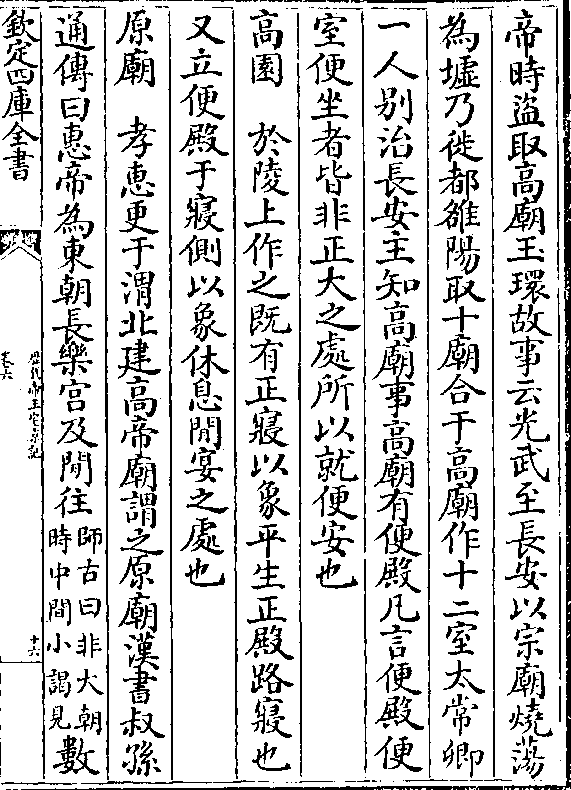 帝時盗取高廟玉環故事云光武至長安以宗廟燒蕩
為墟乃徙都雒陽取十廟合于高廟作十二室太常卿
一人别治長安主知高廟事高廟有便殿凡言便殿便
室便坐者皆非正大之處所以就便安也
高園　於陵上作之既有正寢以象平生正殿路寢也
又立便殿于寢側以象休息閒宴之處也
原廟　孝惠更于渭北建高帝廟謂之原廟漢書叔孫
通傳曰惠帝為東朝長樂宫及閒往師古曰非大朝時中間小謁見數
欽定四庫全書
歴代帝王宅京記
卷六
十六